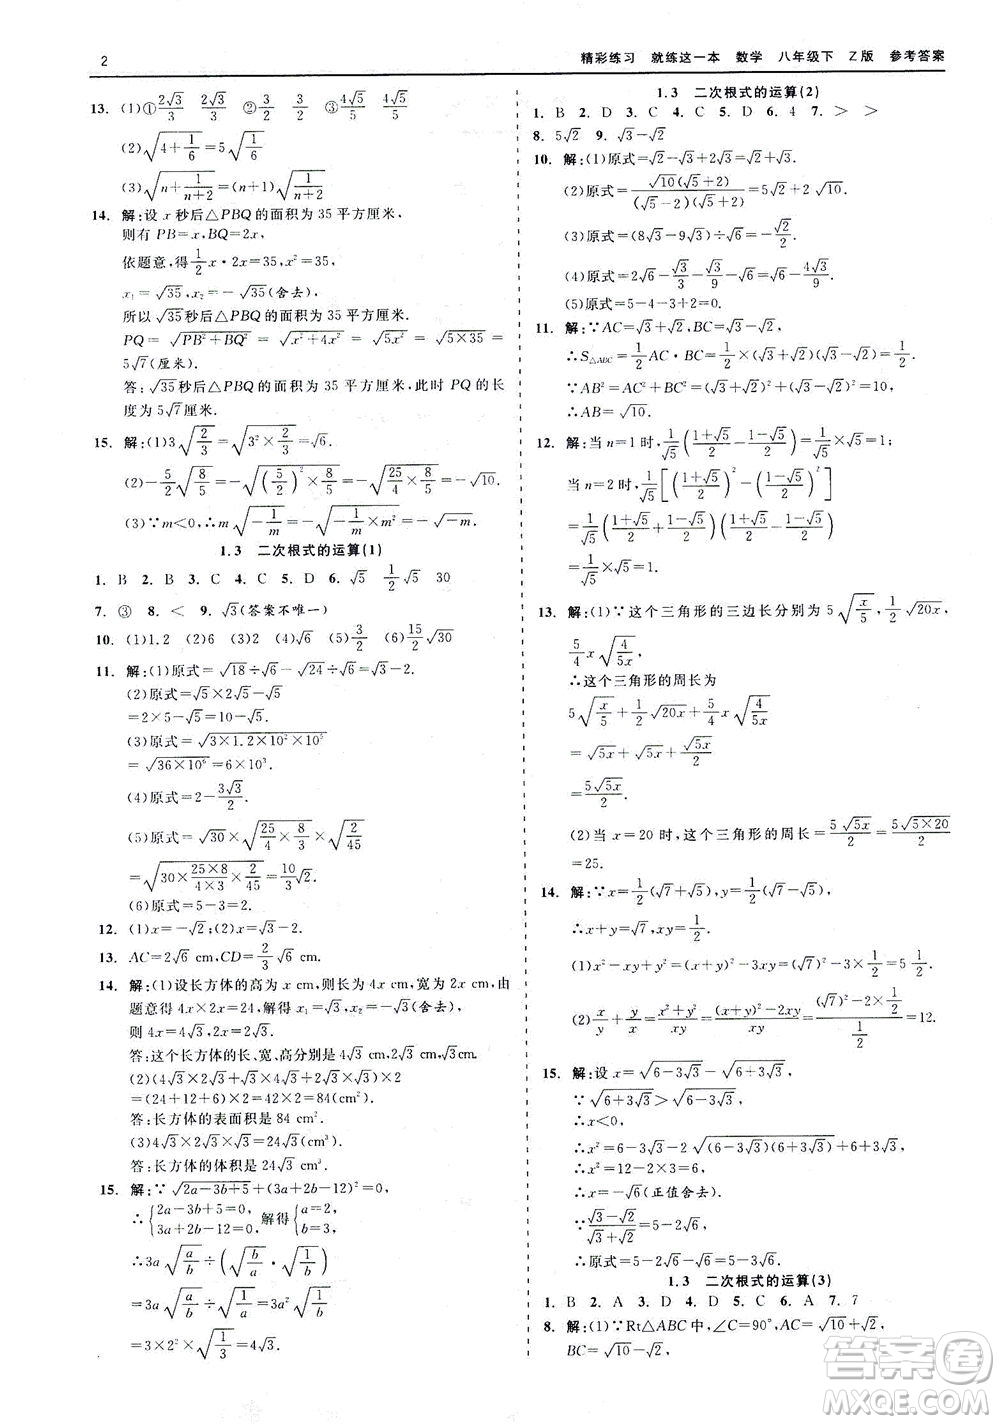 2
精彩练习 就练这一本 数学 八年级下 Z版 参考答案
13. (1)①2√3/3 2√3/3 ②3/2 3/2 ③4√5/5 4√5/5
(2)√(4+1/6)=5√(1/6)
(3)√(n+1/(n+2))=(n+1)√(1/(n+2))
14. 解:设 x 秒后△PBQ 的面积为 35 平方厘米,
则有 PB=x,BQ=2x,
依题意,得1/2x·2x=35,x²=35,
x₁=√35,x₂=-√35(舍去)
所以√35秒后△PBQ的面积为35平方厘米.
PQ=√(PB²+BQ²)=√(x²+4x²)=√(5x²)=√(5×35)=
5√7(厘米).
答:√35秒后△PBQ的面积为35平方厘米,此时PQ的长
度为5√7厘米.
15. 解:(1)3√(2/3)=√(3²×2/3)=√6.
(2)-5/2√(8/5)=-√((5/2)²×8/5)=-√(25/4×8/5)=-√10.
(3)∵m<0,∴m√(-1/m)=-√(-1/m×m²)=-√(-m).
1.3 二次根式的运算(1)
1. B 2. B 3. C 4. C 5. D 6. √5 1/2√5 30
7. ③ 8. < 9. √3(答案不唯一)
10. (1)1.2 (2)6 (3)2 (4)√6 (5)3/2 (6)2/15√30
11. 解:(1)原式=√18÷√6-√24÷√6=√3-2.
(2)原式=√5×2√5-√5
=2×5-√5=10-√5.
(3)原式=√(3×1.2×10²×10⁵)
=√(36×10⁶)=6×10³.
(4)原式=2-3√3/2.
(5)原式=√30×√(25/4×8/3)×√(2/45)
=√(30×(25×8)/(4×3)×2/45)=√(200/9)=10√2/3.
(6)原式=5-3=2.
12. (1)x=-√2;(2)x=√3-2.
13. AC=2√6 cm,CD=2/3√6 cm.
14. 解:(1)设长方体的高为x cm,则长为4x cm,宽为2x cm,由
题意得4x×2x=24,解得x₁=√3,x₂=-√3(舍去),
则4x=4√3,2x=2√3.
答:这个长方体的长、宽、高分别是4√3 cm、2√3 cm、√3 cm.
(2)(4√3×2√3+4√3×√3+2√3×√3)×2
=(24+12+6)×2=42×2=84(cm²).
答:长方体的表面积是84 cm².
(3)4√3×2√3×√3=24√3(cm³).
答:长方体的体积是24√3 cm³.
15. 解:∵√(2a-3b+5)+(3a+2b-12)²=0,
∴{2a-3b+5=0, 3a+2b-12=0, 解得{a=2, b=3.
∴3a√(a/b)÷(√(b/a)·√(1/b))
=3a√(a/b)÷√(1/a)=3a²√(1/b)
=3×2²×√(1/3)=4√3.
1.3 二次根式的运算(2)
1. B 2. D 3. C 4. C 5. D 6. 4 7. > >
8. 5√2 9. √3-√2
10. 解:(1)原式=√2-√3+2√3=√2+√3.
(2)原式=√10(√5+2)/((√5-2)(√5+2))=5√2+2√10.
(3)原式=(8√3-9√3)÷√6=-√2/2.
(4)原式=√2/3-√3/9×√2/3=√2/3-√3/9.
(5)原式=5-4-3+2=0.
11. 解:∵AC=√3+√2,BC=√3-√2,
∴S△ABC=1/2AC·BC=1/2×(√3+√2)(√3-√2)=1/2.
∵AB²=AC²+BC²=(√3+√2)²+(√3-√2)²=10,
∴AB=√10.
12. 解:当n=1时,1/√5((1+√5)/2-(1-√5)/2)=1/√5×√5=1;
当n=2时,1/√5[((1+√5)/2)²-((1-√5)/2)²]
=1/√5((1+√5)/2+(1-√5)/2)((1+√5)/2-(1-√5)/2)
=1/√5×1×√5=1.
13. 解:(1)∵这个三角形的三边长分别为5√(x/5),1/2√(20x),
5/4x√(4/(5x)),
∴这个三角形的周长为
5√(x/5)+1/2√(20x)+5/4x√(4/(5x))
=√(5x)+√(5x)+√(5x)/2
=5√(5x)/2.
(2)当x=20时,这个三角形的周长=5√(5x)/2=5√(5×20)/2
=25.
14. 解:∵x=1/2(√7+√5),y=1/2(√7-√5),
∴x+y=√7,xy=1/2.
(1)x²-xy+y²=(x+y)²-3xy=(√7)²-3×1/2=11/2.
(2)x/y+y/x=(x²+y²)/xy=((x+y)²-2xy)/xy=((√7)²-2×1/2)/(1/2)=12.
15. 解:设x=√(6-3√3)-√(6+3√3),
∵√(6+3√3)>√(6-3√3),
∴x<0,
∴x²=6-3√3-2√((6-3√3)(6+3√3))+6+3√3,
∴x²=12-2×3=6,
∴x=-√6(正值舍去).
∵(√3-√2)/(√3+√2)=5-2√6,
∴原式=5-2√6-√6=5-3√6.
1.3 二次根式的运算(3)
1. B 2. A 3. D 4. D 5. C 6. A 7. 7
8. 解:(1)∵Rt△ABC中,∠C=90°,AC=√10+√2,
BC=√10-√2,
答案圈
MXQE.COM